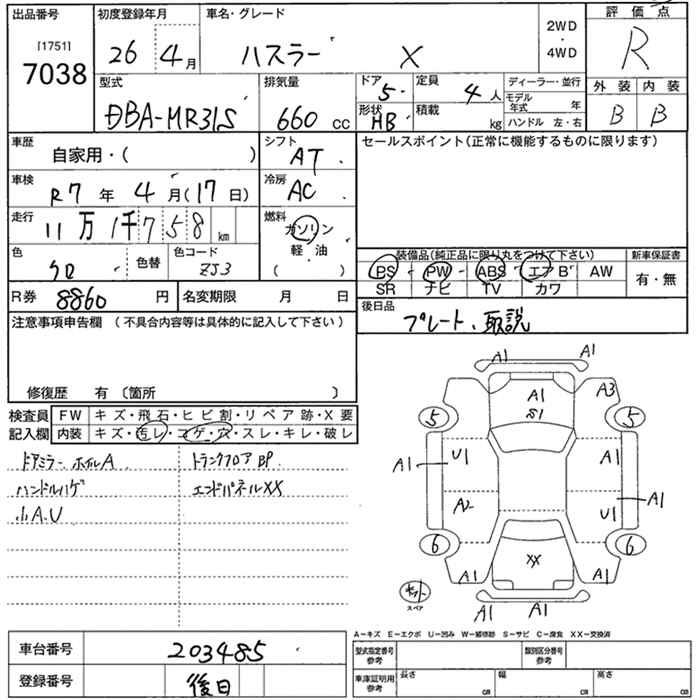 出品番号 初度登録年月 車名・グレード 2WD・4WD 評価点
[1751] 7038 26 4月 ハスラー X R
型式 排気量 ドア 5 定員 4人 ディーラー・並行 外装 内装
DBA-MR31S 660 cc 形状 HB 積載 kg モデル年式 年 B B
ハンドル 左・右
車歴 自家用・( ) シフト AT セールスポイント(正常に機能するものに限ります)
車検 R7年 4月(17日) 冷房 AC
走行 11万1千758km 燃料 ガソリン
軽・油
( )
色 クロ 色替 色コード ZJ3 装備品(純正品に限り丸をつけて下さい) 新車保証書
PS PW ABS エアB AW 有・無
SR ナビ TV カワ
R券 8860円 名変期限 月 日 後日品
プレート、取説
注意事項申告欄(不具合内容等は具体的に記入して下さい)
修復歴 有〔箇所 〕
検査員記入欄 FW キズ・飛石・ヒビ割・リペア跡・X要
内装 キズ・汚レ・コゲ・穴・スレ・キレ・破レ
ドアミラー ホイルA トランクフロアBP
ハンドルハゲ エンドパネルXX
小A.U
A1 A1
A1 S1 A3
5 5
A1 U1 A1
A2 U1 A1
6 6
XX
A1 A1
スペア
A1 A1
A-キズ E-エクボ U-凹み W-補修跡 S-サビ C-腐食 XX-交換済
車台番号 203485 型式指定番号 参考 類別区分番号 参考
登録番号 後日 車庫証明用 参考 長さ cm 幅 cm 高さ cm